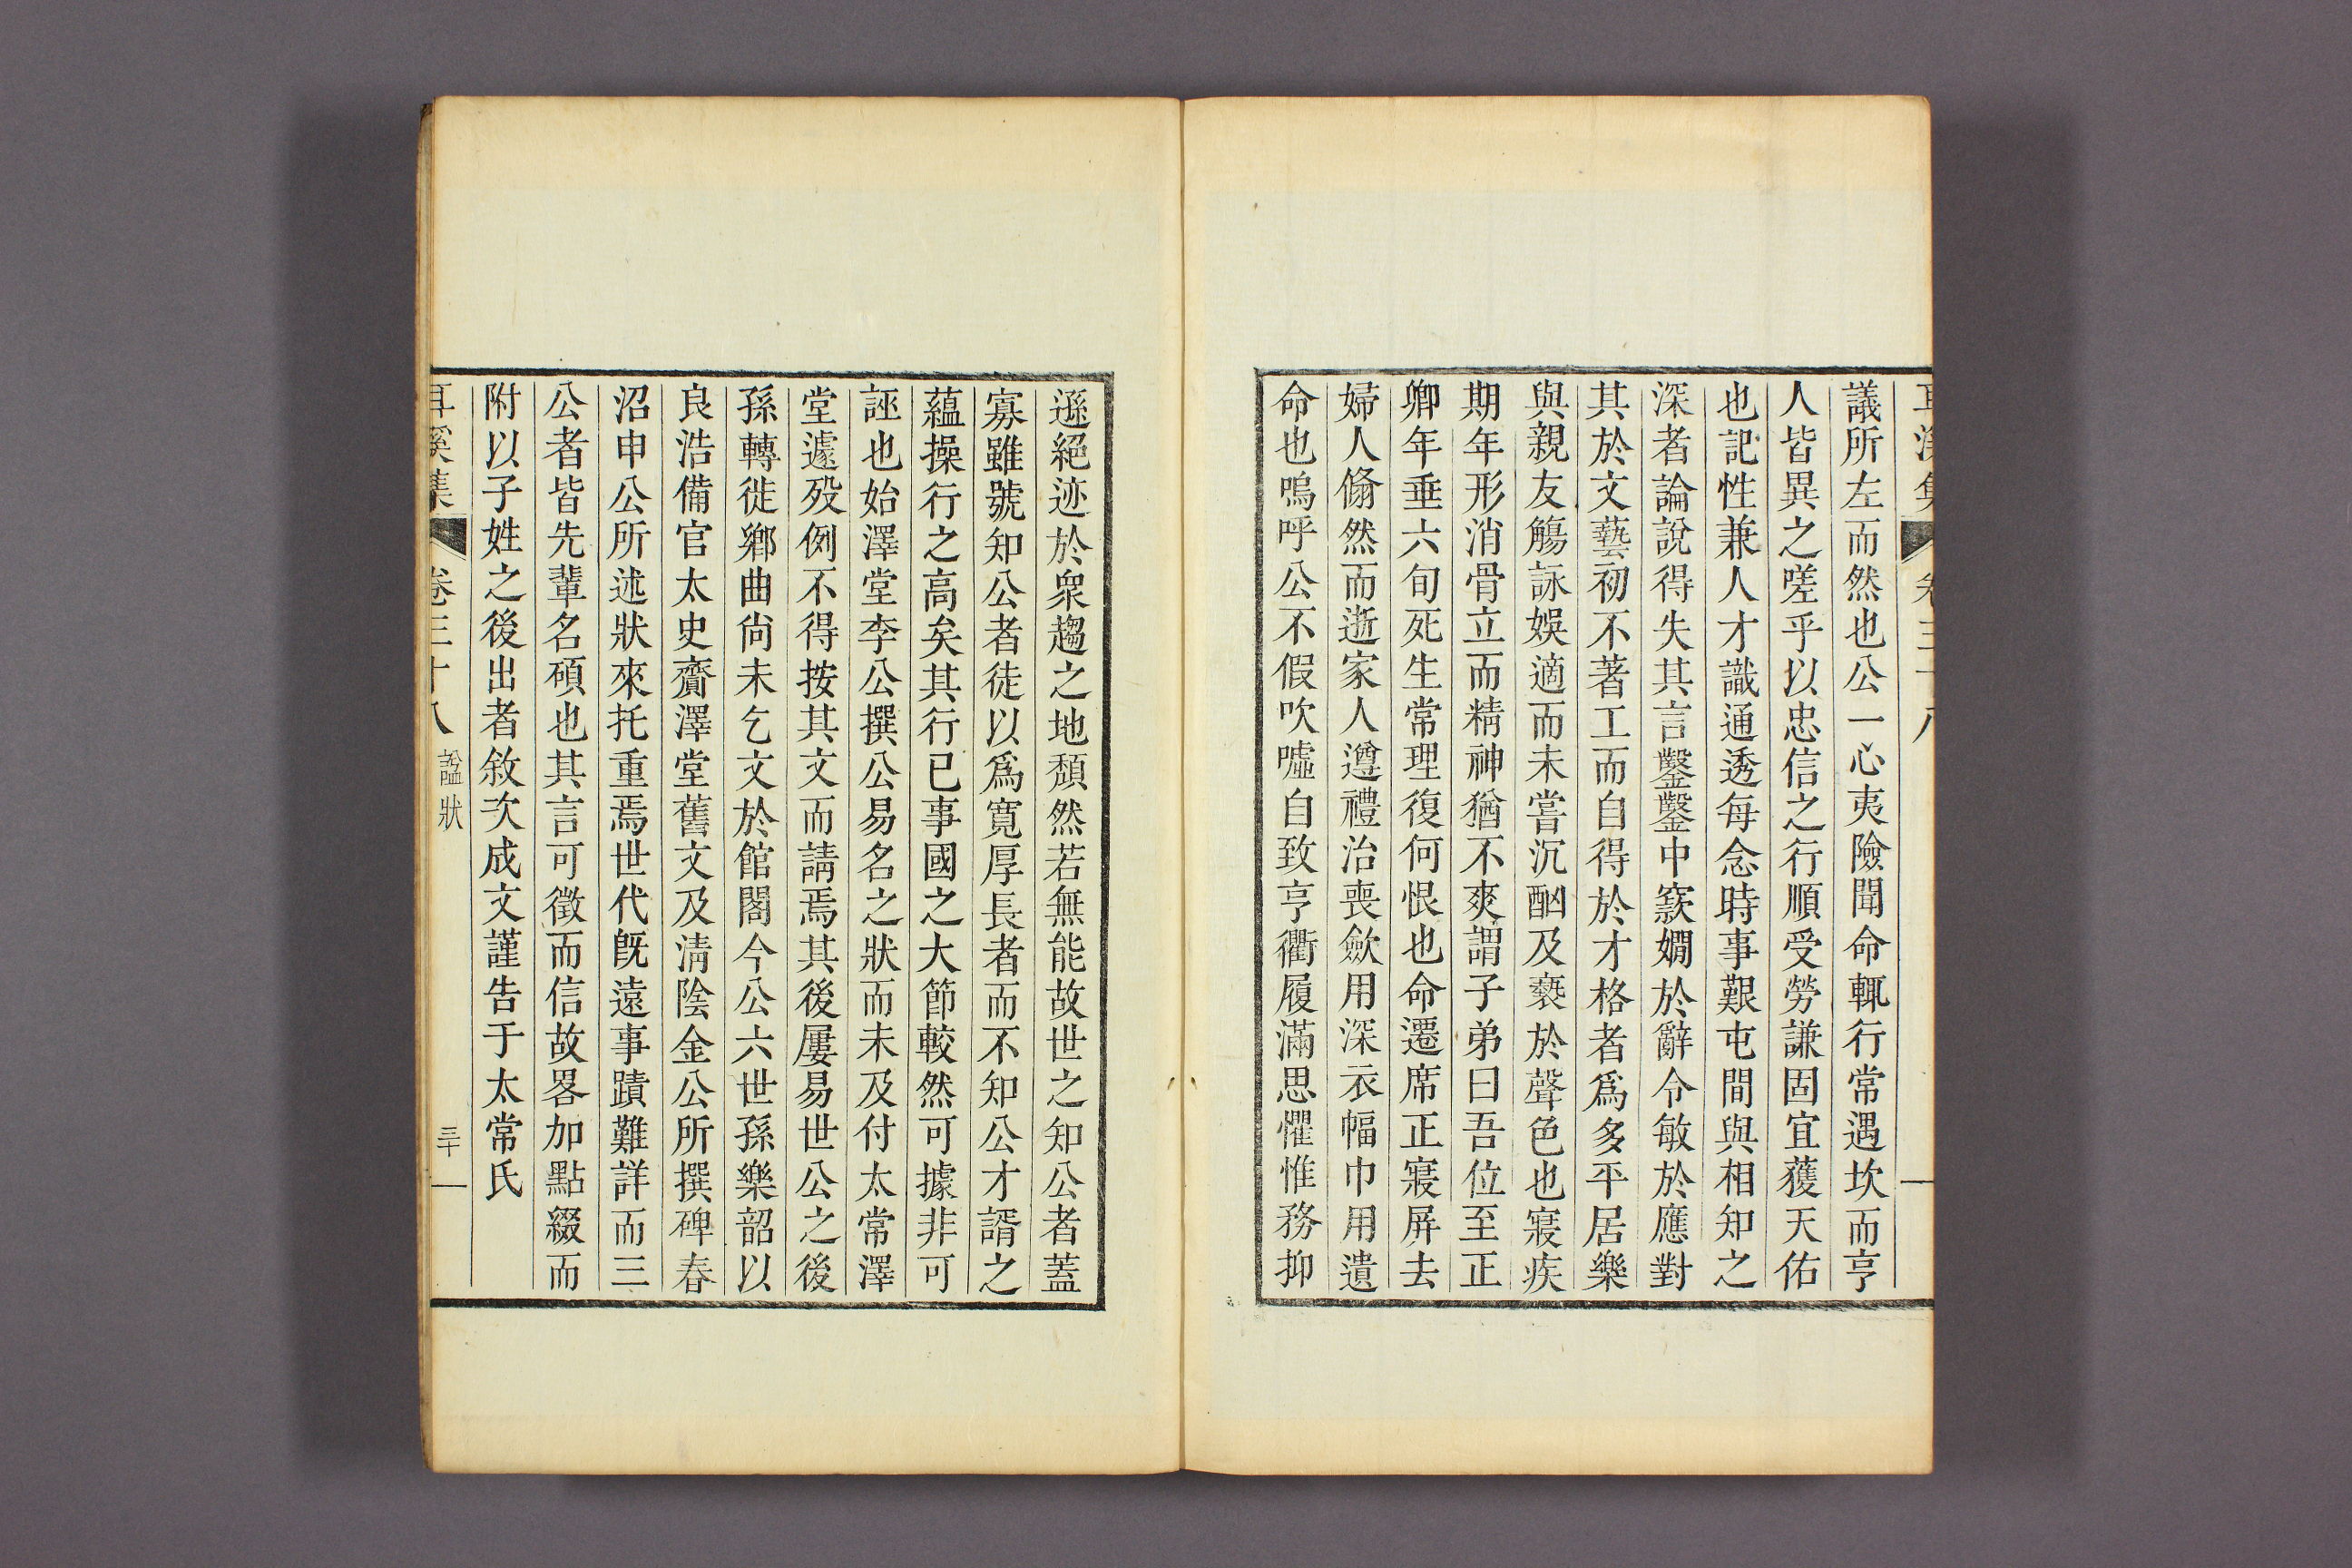 耳溪集 卷三十八
議所左而然也公一心夷險聞命輒行常遇坎而亨
人皆異之嗟乎以忠信之行順受勞謙固宜獲天佑
也記性兼人才識通透每念時事艱屯間與相知之
深者論說得失其言鑿鑿中窾嫺於辭令敏於應對
其於文藝初不著工而自得於才格者爲多平居樂
與親友觴詠娛適而未嘗沉酗及褻於聲色也寢疾
期年形消骨立而精神猶不爽謂子弟曰吾位至正
卿年垂六旬死生常理復何恨也命遷席正寢屛去
婦人翛然而逝家人遵禮治喪斂用深衣幅巾用遺
命也嗚呼公不假吹噓自致亨衢履滿思懼惟務抑
遜絕迹於衆趨之地頹然若無能故世之知公者蓋
寡雖號知公者徒以爲寬厚長者而不知公才諝之
蘊操行之高矣其行已事國之大節較然可據非可
誣也始澤堂李公撰公易名之狀而未及付太常澤
堂遽歿例不得按其文而請焉其後屢易世公之後
孫轉徙鄕曲尙未乞文於館閣今公六世孫樂韶以
良浩備官太史齎澤堂舊文及淸陰金公所撰碑春
沼申公所述狀來托重焉世代旣遠事蹟難詳而三
公者皆先輩名碩也其言可徵而信故畧加點綴而
附以子姓之後出者敘次成文謹告于太常氏
耳溪集 卷三十八 諡狀 三十